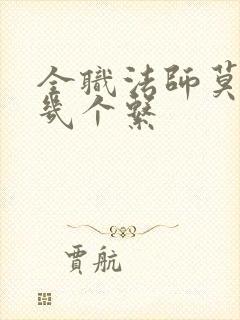 全職法師莫
幾个繫
賈航